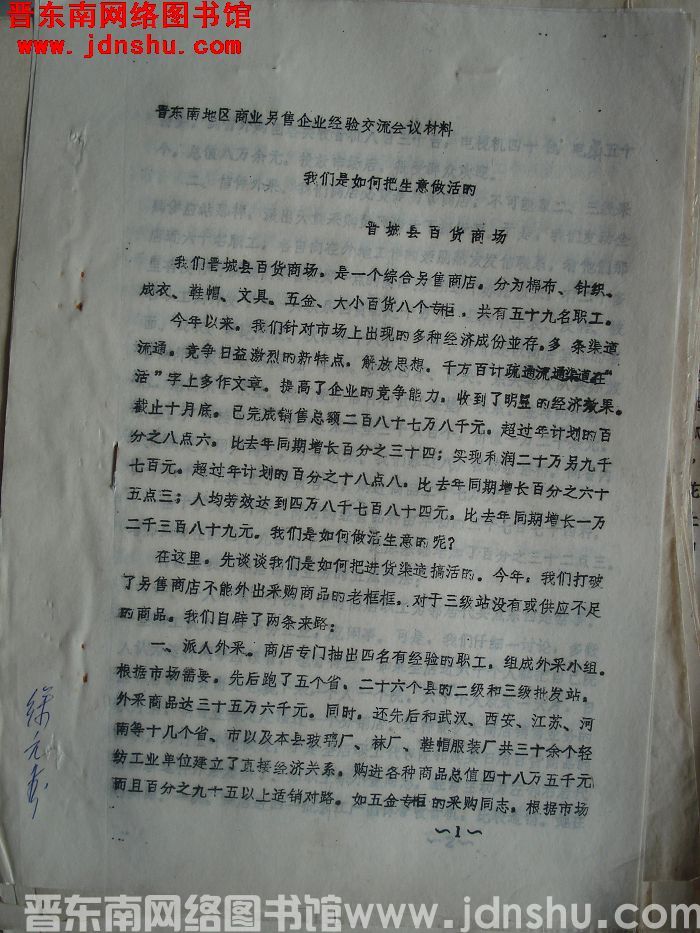 晋东南网络图书馆
www.jdnshu.com
晋东南地区商业另售企业经验交流会议材料
我们是如何把生意做活的
晋城县百货商场
我们晋城县百货商场。是一个综合另售商店。分为棉布、针织、
成衣、鞋帽、文具。五金、大小百货八个专柜，共有五十九名职工。
今年以来。我们针对市场上出现的多种经济成份並存。多 条渠道
流通。竞争日益激烈的新特点。解放思想。千方百计疏通流通渠道在“
活”字上多作文章。提高了企业的竞争能力。收到了明显的经济效果。
截止十月底。已完成销售总额二百八十七万八千元。超过年计划的百
分之八点六。比去年同期增长百分之三十四；实现利润二十万另九千
七百元。超过年计划的百分之十八点八。比去年同期增长百分之六十
五点三；人均劳效达到四万八千七百八十四元。比去年同期增长一万
二千三百八十九元。我们是如何做活生意的呢？
在这里。先谈谈我们是如何把进货渠道搞活的。今年；我们打破
了另售商店不能外出采购商品的老框框。对于三级站没有或供应不足
的商品。我们自辟了两条来路：
一、派人外采。商店专门抽出四名有经验的职工，组成外采小组。
根据市场需要。先后跑了五个省、二十六个县的二级和三级批发站。
外采商品达三十五万六千元。同时。还先后和武汉、西安、江苏、河
南等十几个省、市以及本县玻璃厂、袜厂、鞋帽服装厂共三十余个轻
纺工业单位建立了直接经济关系。购进各种商品总值四十八万五千元
而且百分之九十五以上适销对路。如五金专柜的采购同志。根据市场
～1～
徐元
晋东南网络图书馆 www.jdnshu.com